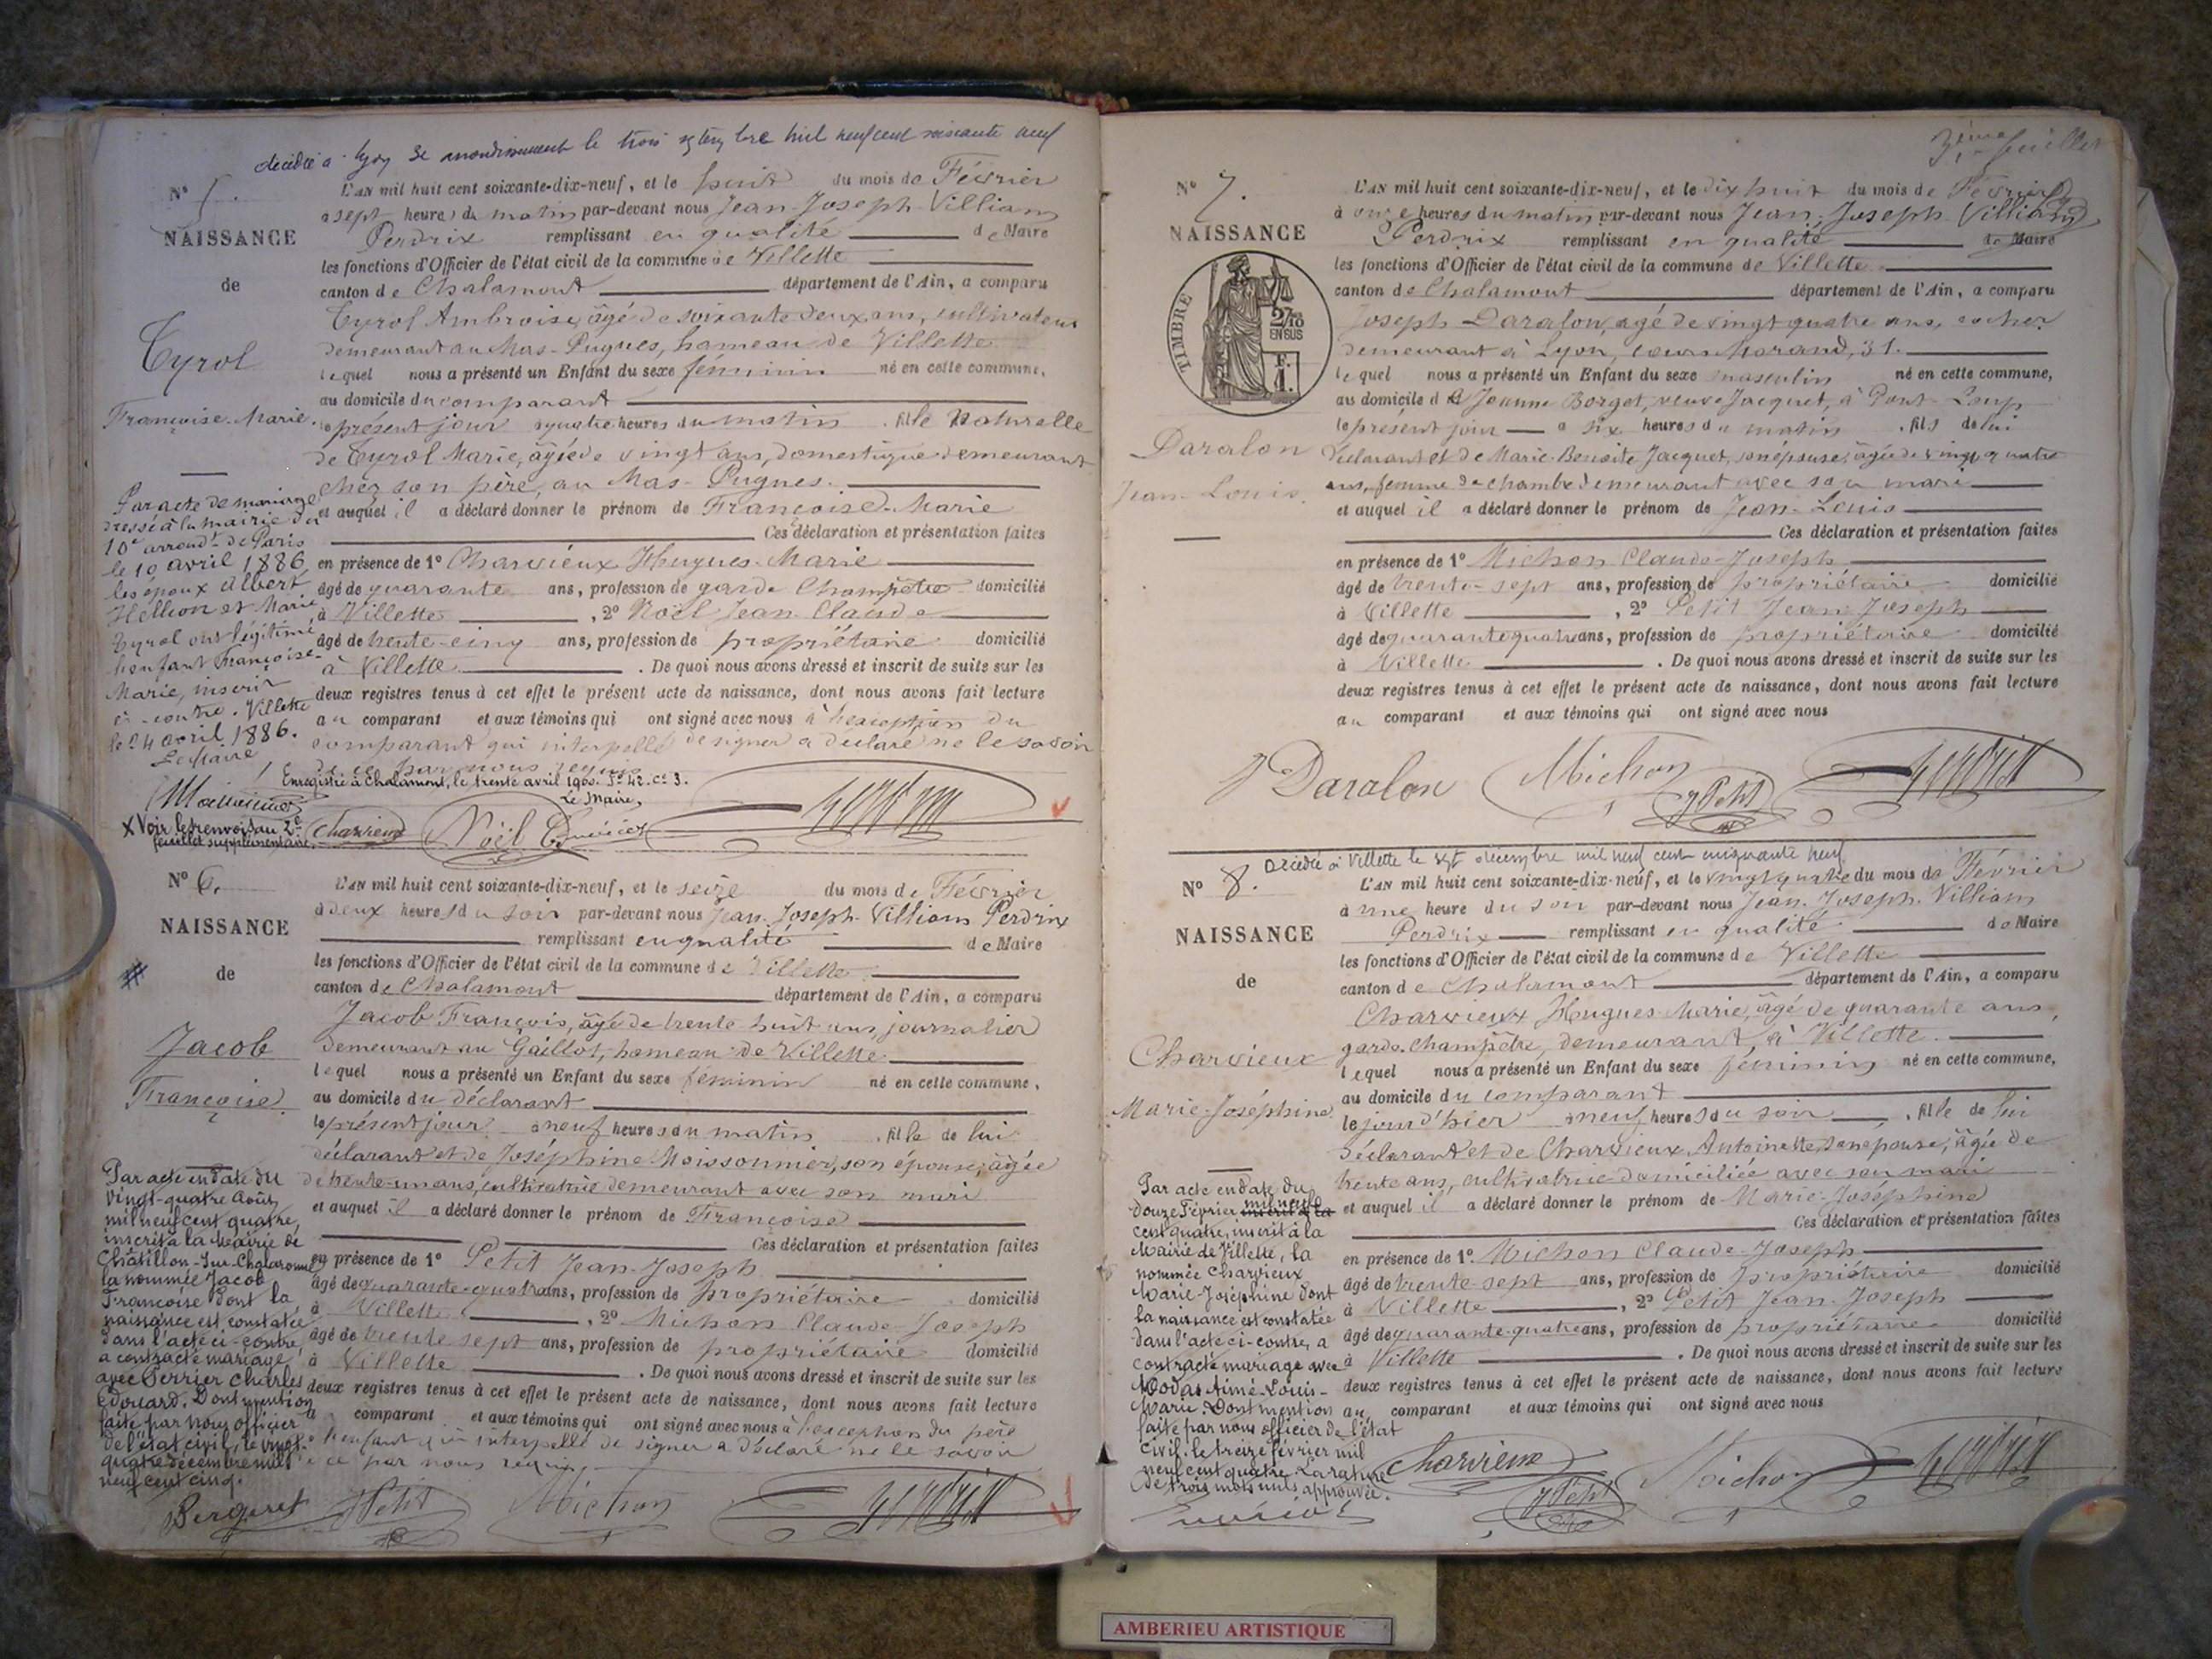 décédée à Lyon 3e arrondissement le trois septembre mil neuf cent soixante neuf
N° 5.
NAISSANCE
de
Tyrol
Françoise-Marie.
L'AN mil huit cent soixante-dix-neuf, et le huit du mois de Février
à sept heures du matin par-devant nous Jean-Joseph-Villiam
Perdrix remplissant en qualité de Maire
les fonctions d'Officier de l'état civil de la commune de Villette
canton de Chalamont département de l'Ain, a comparu
Tyrol Ambroise, âgé de soixante deux ans, cultivateur
demeurant au Mas-Pugues, hameau de Villette
lequel nous a présenté un Enfant du sexe féminin né en cette commune,
au domicile du comparant
le présent jour à quatre heures du matin , fille Naturelle
de Tyrol Marie, âgée de vingt ans, domestique demeurant
chez son père, au Mas-Pugues.
et auquel il a déclaré donner le prénom de Françoise-Marie
Ces déclaration et présentation faites
en présence de 1° Charvieux Hugues-Marie
âgé de quarante ans, profession de garde Champêtre domicilié
à Villette , 2° Noël Jean-Claude
âgé de trente-cinq ans, profession de propriétaire domicilié
à Villette . De quoi nous avons dressé et inscrit de suite sur les
deux registres tenus à cet effet le présent acte de naissance, dont nous avons fait lecture
au comparant et aux témoins qui ont signé avec nous à l'exception du
comparant qui interpellé de signer a déclaré ne le savoir
de ce par nous requis
Par acte de mariage
dressé à la mairie du
10e arrondt de Paris
le 10 avril 1886
les époux Albert
Hellion et Marie
Tyrol ont légitimé
l'enfant Françoise-
Marie, inscrit
ci-contre. Villette
le 24 avril 1886.
Le Maire
Enregistré à Chalamont, le trente avril 1900. F° 42. C° 3.
Le Maire,
X Voir le renvoi au 2e
feuillet supplémentaire.
Charvieux Noël
N° 6.
NAISSANCE
de
Jacob
Françoise.
L'AN mil huit cent soixante-dix-neuf, et le seize du mois de Février
à deux heures du soir par-devant nous Jean-Joseph-Villiam Perdrix
remplissant en qualité de Maire
les fonctions d'Officier de l'état civil de la commune de Villette
canton de Chalamont département de l'Ain, a comparu
Jacob François, âgé de trente huit ans, journalier
demeurant au Gaillot, hameau de Villette
lequel nous a présenté un Enfant du sexe féminin né en cette commune,
au domicile du déclarant
le présent jour à neuf heures du matin , fille de lui
déclarant et de Joséphine Moissonnier, son épouse, âgée
de trente-un ans, cultivatrice demeurant avec son mari
et auquel il a déclaré donner le prénom de Françoise
Ces déclaration et présentation faites
en présence de 1° Petit Jean-Joseph
âgé de quarante-quatre ans, profession de Propriétaire domicilié
à Villette , 2° Michon Claude-Joseph
âgé de trente sept ans, profession de propriétaire domicilié
à Villette . De quoi nous avons dressé et inscrit de suite sur les
deux registres tenus à cet effet le présent acte de naissance, dont nous avons fait lecture
au comparant et aux témoins qui ont signé avec nous à l'exception du père
de l'enfant qui interpellé de signer a déclaré ne le savoir
de ce par nous requis
Par acte en date du
vingt-quatre Août
mil neuf cent quatre,
inscrit à la Mairie de
Châtillon-Sur-Chalaronne
la nommée Jacob
Françoise dont la
naissance est constatée
dans l'acte ci-contre,
a contracté mariage
avec Perrier Charles
Edouard. Dont mention
faite par nous officier
de l'état civil, le vingt-
quatre décembre mil
neuf cent cinq.
Bergeret J Petit Michon
3ème feuillet
N° 7.
NAISSANCE
TIMBRE
2/10
EN SUS
F.
1.
Daralon
Jean-Louis.
L'AN mil huit cent soixante-dix-neuf, et le dix huit du mois de Février
à onze heures du matin par-devant nous Jean-Joseph-Villiam
Perdrix remplissant en qualité de Maire
les fonctions d'Officier de l'état civil de la commune de Villette
canton de Chalamont département de l'Ain, a comparu
Joseph Daralon, âgé de vingt quatre ans, cocher
demeurant à Lyon, cours Morand, 31.
lequel nous a présenté un Enfant du sexe masculin né en cette commune,
au domicile de Jeanne Borget, veuve Jacquet, à Pont-Loup
le présent jour à six heures du matin , fils de lui
déclarant et de Marie-Benoite Jacquet, son épouse, âgée de vingt quatre
ans, femme de chambre demeurant avec son mari
et auquel il a déclaré donner le prénom de Jean-Louis
Ces déclaration et présentation faites
en présence de 1° Michon Claude-Joseph
âgé de trente-sept ans, profession de propriétaire domicilié
à Villette , 2° Petit Jean-Joseph
âgé de quarante quatre ans, profession de propriétaire domicilié
à Villette . De quoi nous avons dressé et inscrit de suite sur les
deux registres tenus à cet effet le présent acte de naissance, dont nous avons fait lecture
au comparant et aux témoins qui ont signé avec nous
J Daralon Michon J Petit
Décédée à Villette le sept décembre mil neuf cent cinquante neuf
N° 8.
NAISSANCE
de
Charvieux
Marie-Joséphine
L'AN mil huit cent soixante-dix-neuf, et le vingt quatre du mois de Février
à une heure du soir par-devant nous Jean-Joseph-Villiam
Perdrix remplissant en qualité de Maire
les fonctions d'Officier de l'état civil de la commune de Villette
canton de Chalamont département de l'Ain, a comparu
Charvieux Hugues-Marie, âgé de quarante ans,
garde-champêtre, demeurant à Villette
lequel nous a présenté un Enfant du sexe féminin né en cette commune,
au domicile du comparant
le jour d'hier à neuf heures du soir , fille de lui
déclarant et de Charvieux Antoinette, son épouse, âgée de
trente ans, cultivatrice domiciliée avec son mari
et auquel il a déclaré donner le prénom de Marie-Joséphine
Ces déclaration et présentation faites
en présence de 1° Michon Claude-Joseph
âgé de trente-sept ans, profession de propriétaire domicilié
à Villette , 2° Petit Jean-Joseph
âgé de quarante-quatre ans, profession de propriétaire domicilié
à Villette . De quoi nous avons dressé et inscrit de suite sur les
deux registres tenus à cet effet le présent acte de naissance, dont nous avons fait lecture
au comparant et aux témoins qui ont signé avec nous
Par acte en date du
douze Février mil neuf
cent quatre, inscrit à la
Mairie de Villette, la
nommée Charvieux
Marie-Joséphine dont
la naissance est constatée
dans l'acte ci-contre, a
contracté mariage avec
Modas Aimé-Louis-
Marie. Dont mention
faite par nous officier de l'état
civil le treize février mil
neuf cent quatre. La rature
de trois mots nuls approuvée.
Charvieux J Petit Michon
AMBERIEU ARTISTIQUE